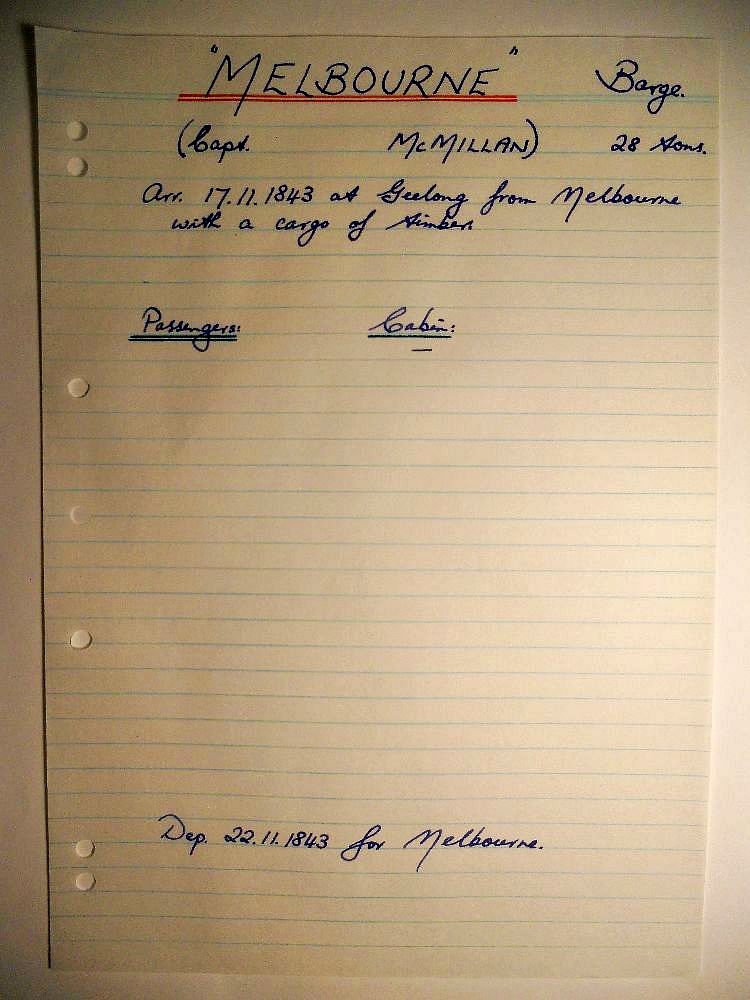 "MELBOURNE" Barge.
(Capt. McMILLAN) 28 tons.
Arr. 17.11.1843 at Geelong from Melbourne
with a cargo of timber.
Passengers: Cabin:
—
Dep. 22.11.1843 for Melbourne.